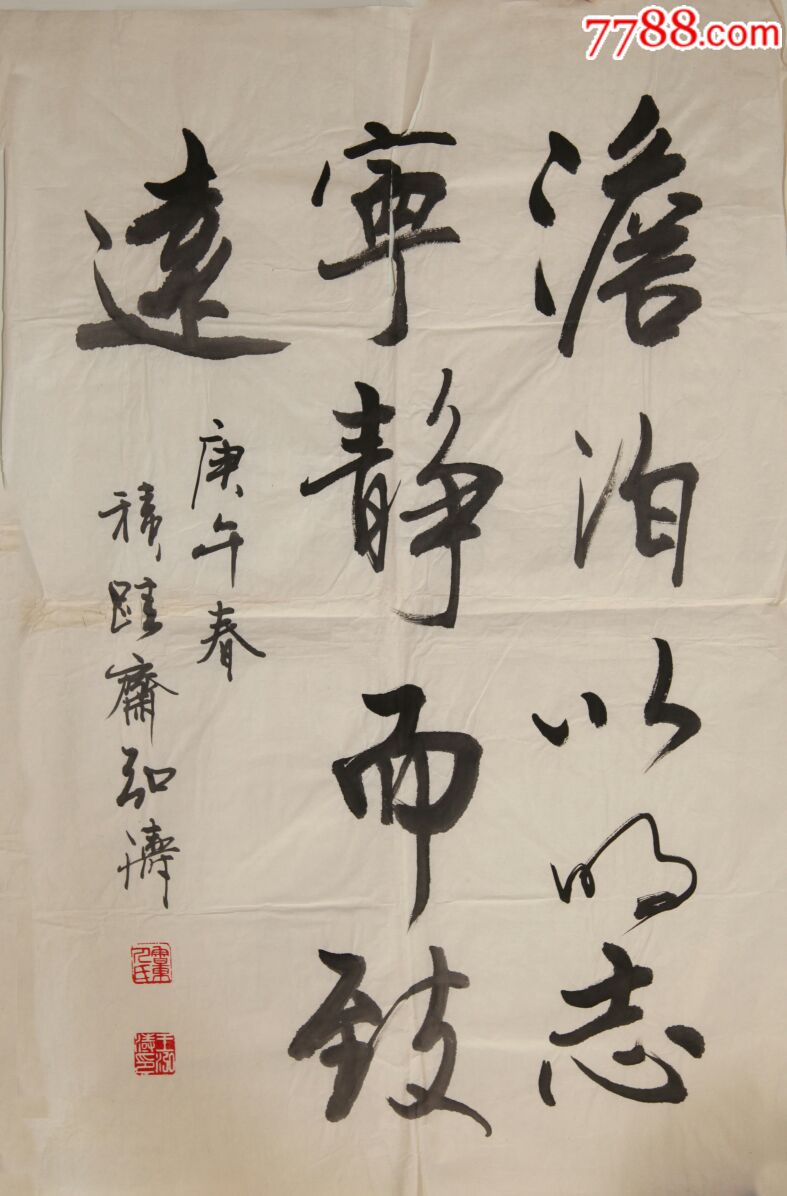 7788.com
澹泊以明志
寧靜而致
遠
庚午春
積跬齋弘